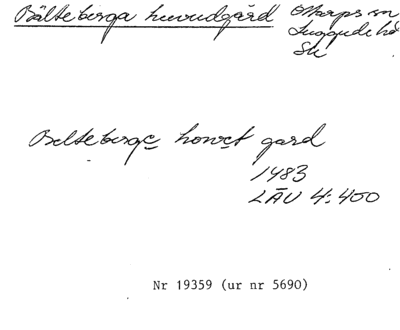 Bälteberga huvudgård Ottarps sn
Luggude hd
Sk
Belteberge howet gard
1483
LÄU 4:400
Nr 19359 (ur nr 5690)